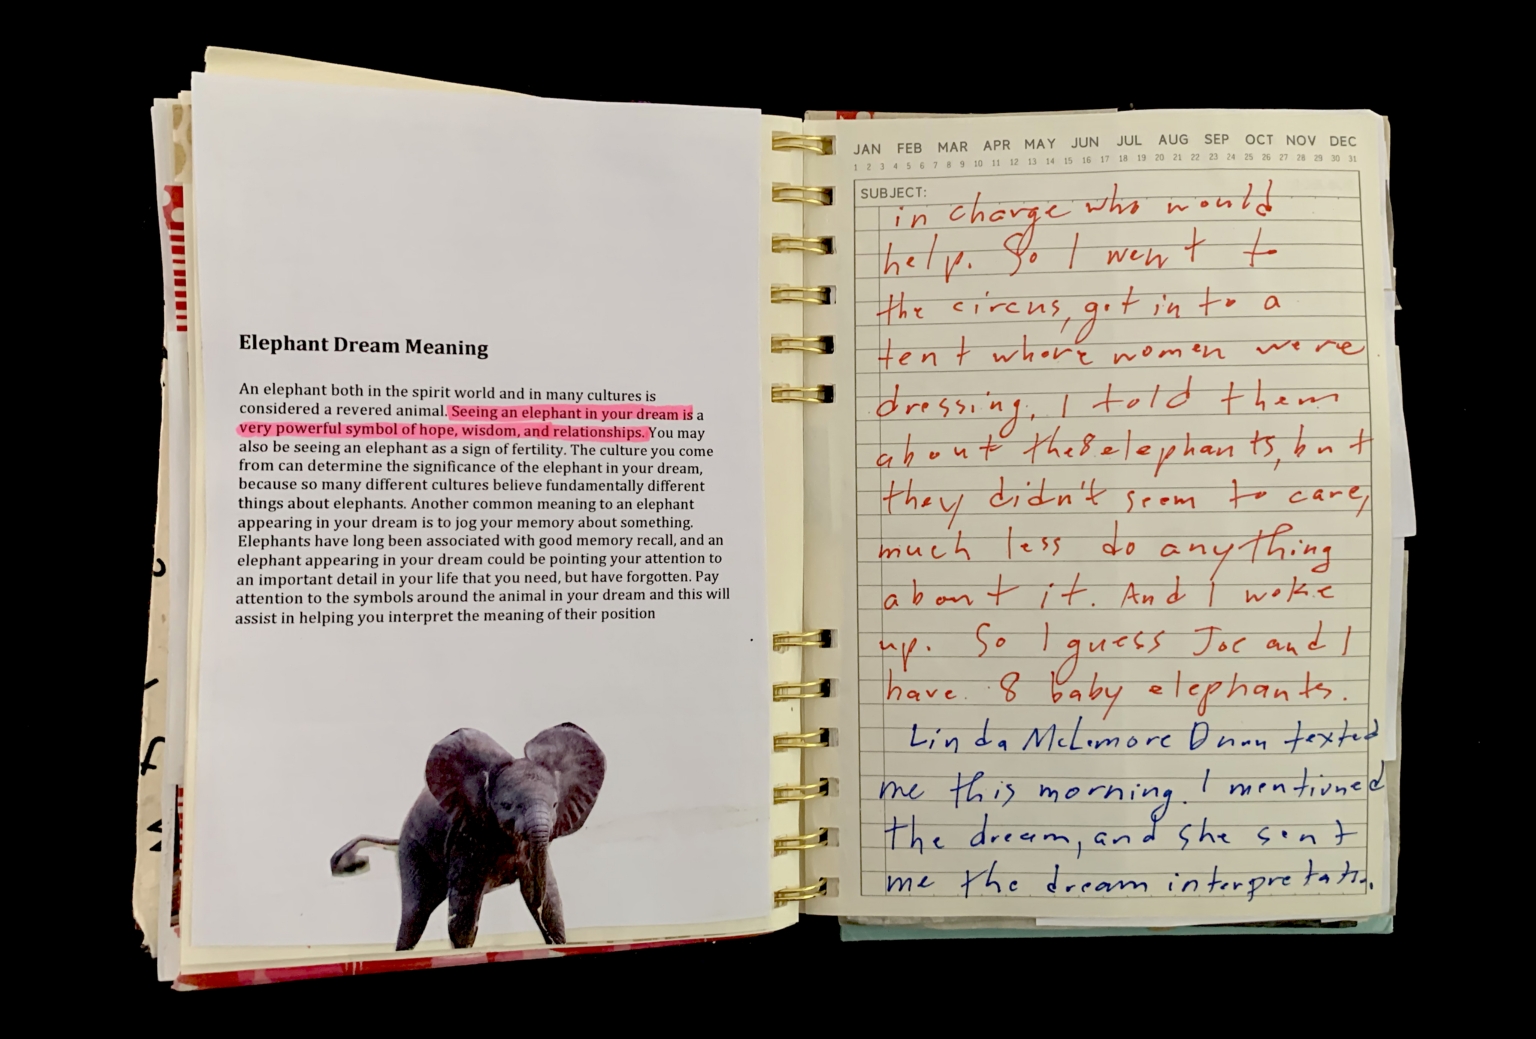 Elephant Dream Meaning
An elephant both in the spirit world and in many cultures is
considered a revered animal. Seeing an elephant in your dream is a
very powerful symbol of hope, wisdom, and relationships. You may
also be seeing an elephant as a sign of fertility. The culture you come
from can determine the significance of the elephant in your dream,
because so many different cultures believe fundamentally different
things about elephants. Another common meaning to an elephant
appearing in your dream is to jog your memory about something.
Elephants have long been associated with good memory recall, and an
elephant appearing in your dream could be pointing your attention to
an important detail in your life that you need, but have forgotten. Pay
attention to the symbols around the animal in your dream and this will
assist in helping you interpret the meaning of their position
JAN FEB MAR APR MAY JUN JUL AUG SEP OCT NOV DEC
1 2 3 4 5 6 7 8 9 10 11 12 13 14 15 16 17 18 19 20 21 22 23 24 25 26 27 28 29 30 31
SUBJECT:
in charge who would
help. So I went to
the circus, got into a
tent where women were
dressing, I told them
about the 8 elephants, but
they didn't seem to care,
much less do anything
about it. And I woke
up. So I guess Joe and I
have 8 baby elephants.
Linda McLemore Dunn texted
me this morning. I mentioned
the dream, and she sent
me the dream interpretation.